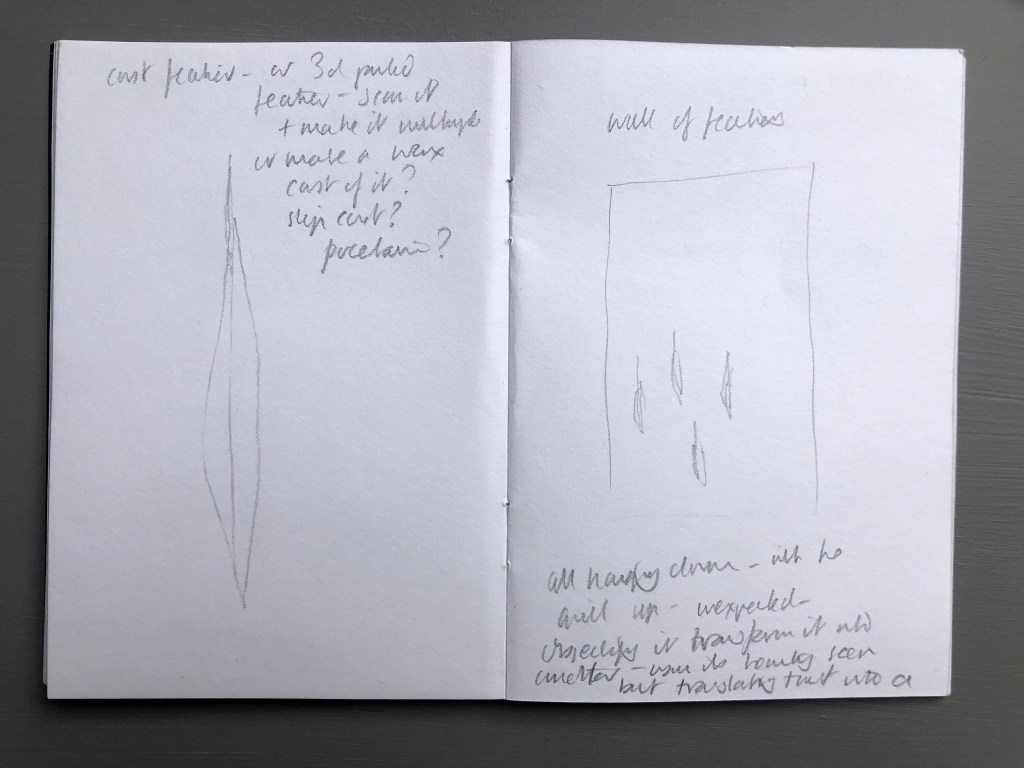 cast feather - or 3d printed
feather - scan it
+ make it multiple
or make a wax
cast of it?
slip cast?
porcelain?
wall of feathers
all hanging down - with the
quill up - unexpected -
objectifying it transform it into
another - its being seen
but translating that into a